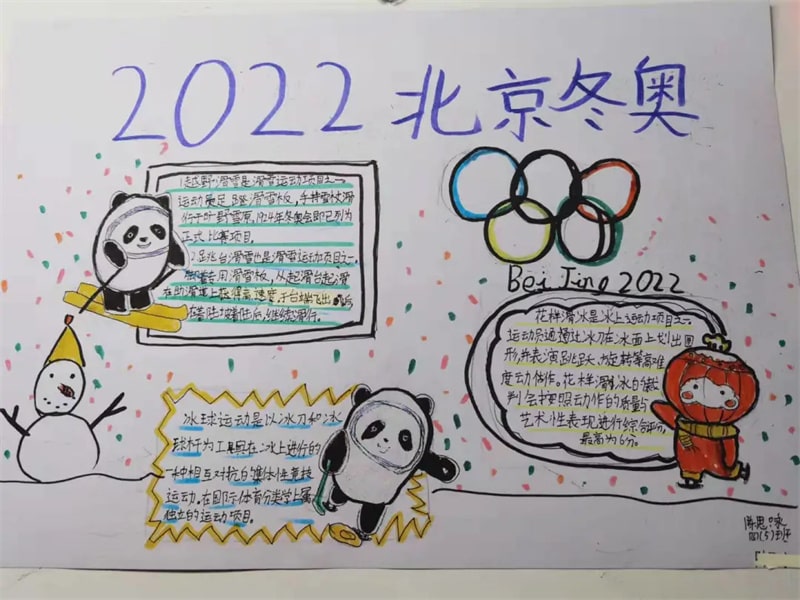 2022北京冬奥
1越野滑雪是滑雪运动项目之一
运动员足踏滑雪板，手持雪杖滑
行于叶野雪原，1924年冬奥会即已列为
正式比赛项目。
2.跳台滑雪也是滑雪运动项目之一
用滑雪板，从起滑台起滑
在助滑道上获得高速度，于台端飞出
着陆后，继续滑行。
Bei Jing 2022
花样滑冰是冰上运动项目之一
运动员通过冰刀在冰面上划出图
形，并表演跳跃、旋转等高难
度动作。花样滑冰的裁
判会按照动作的质量与
艺术性表现进行综合评分，
最高为6分。
冰球运动是以冰刀和冰
球杆为工具在冰上进行的
一种相互对抗的集体性竞技
运动。在国际体育分类学上属
独立的运动项目。
陈思
四(5)班